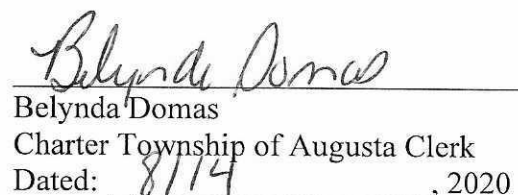 Belynda Domas
Belynda Domas
Charter Township of Augusta Clerk
Dated: 8/14, 2020